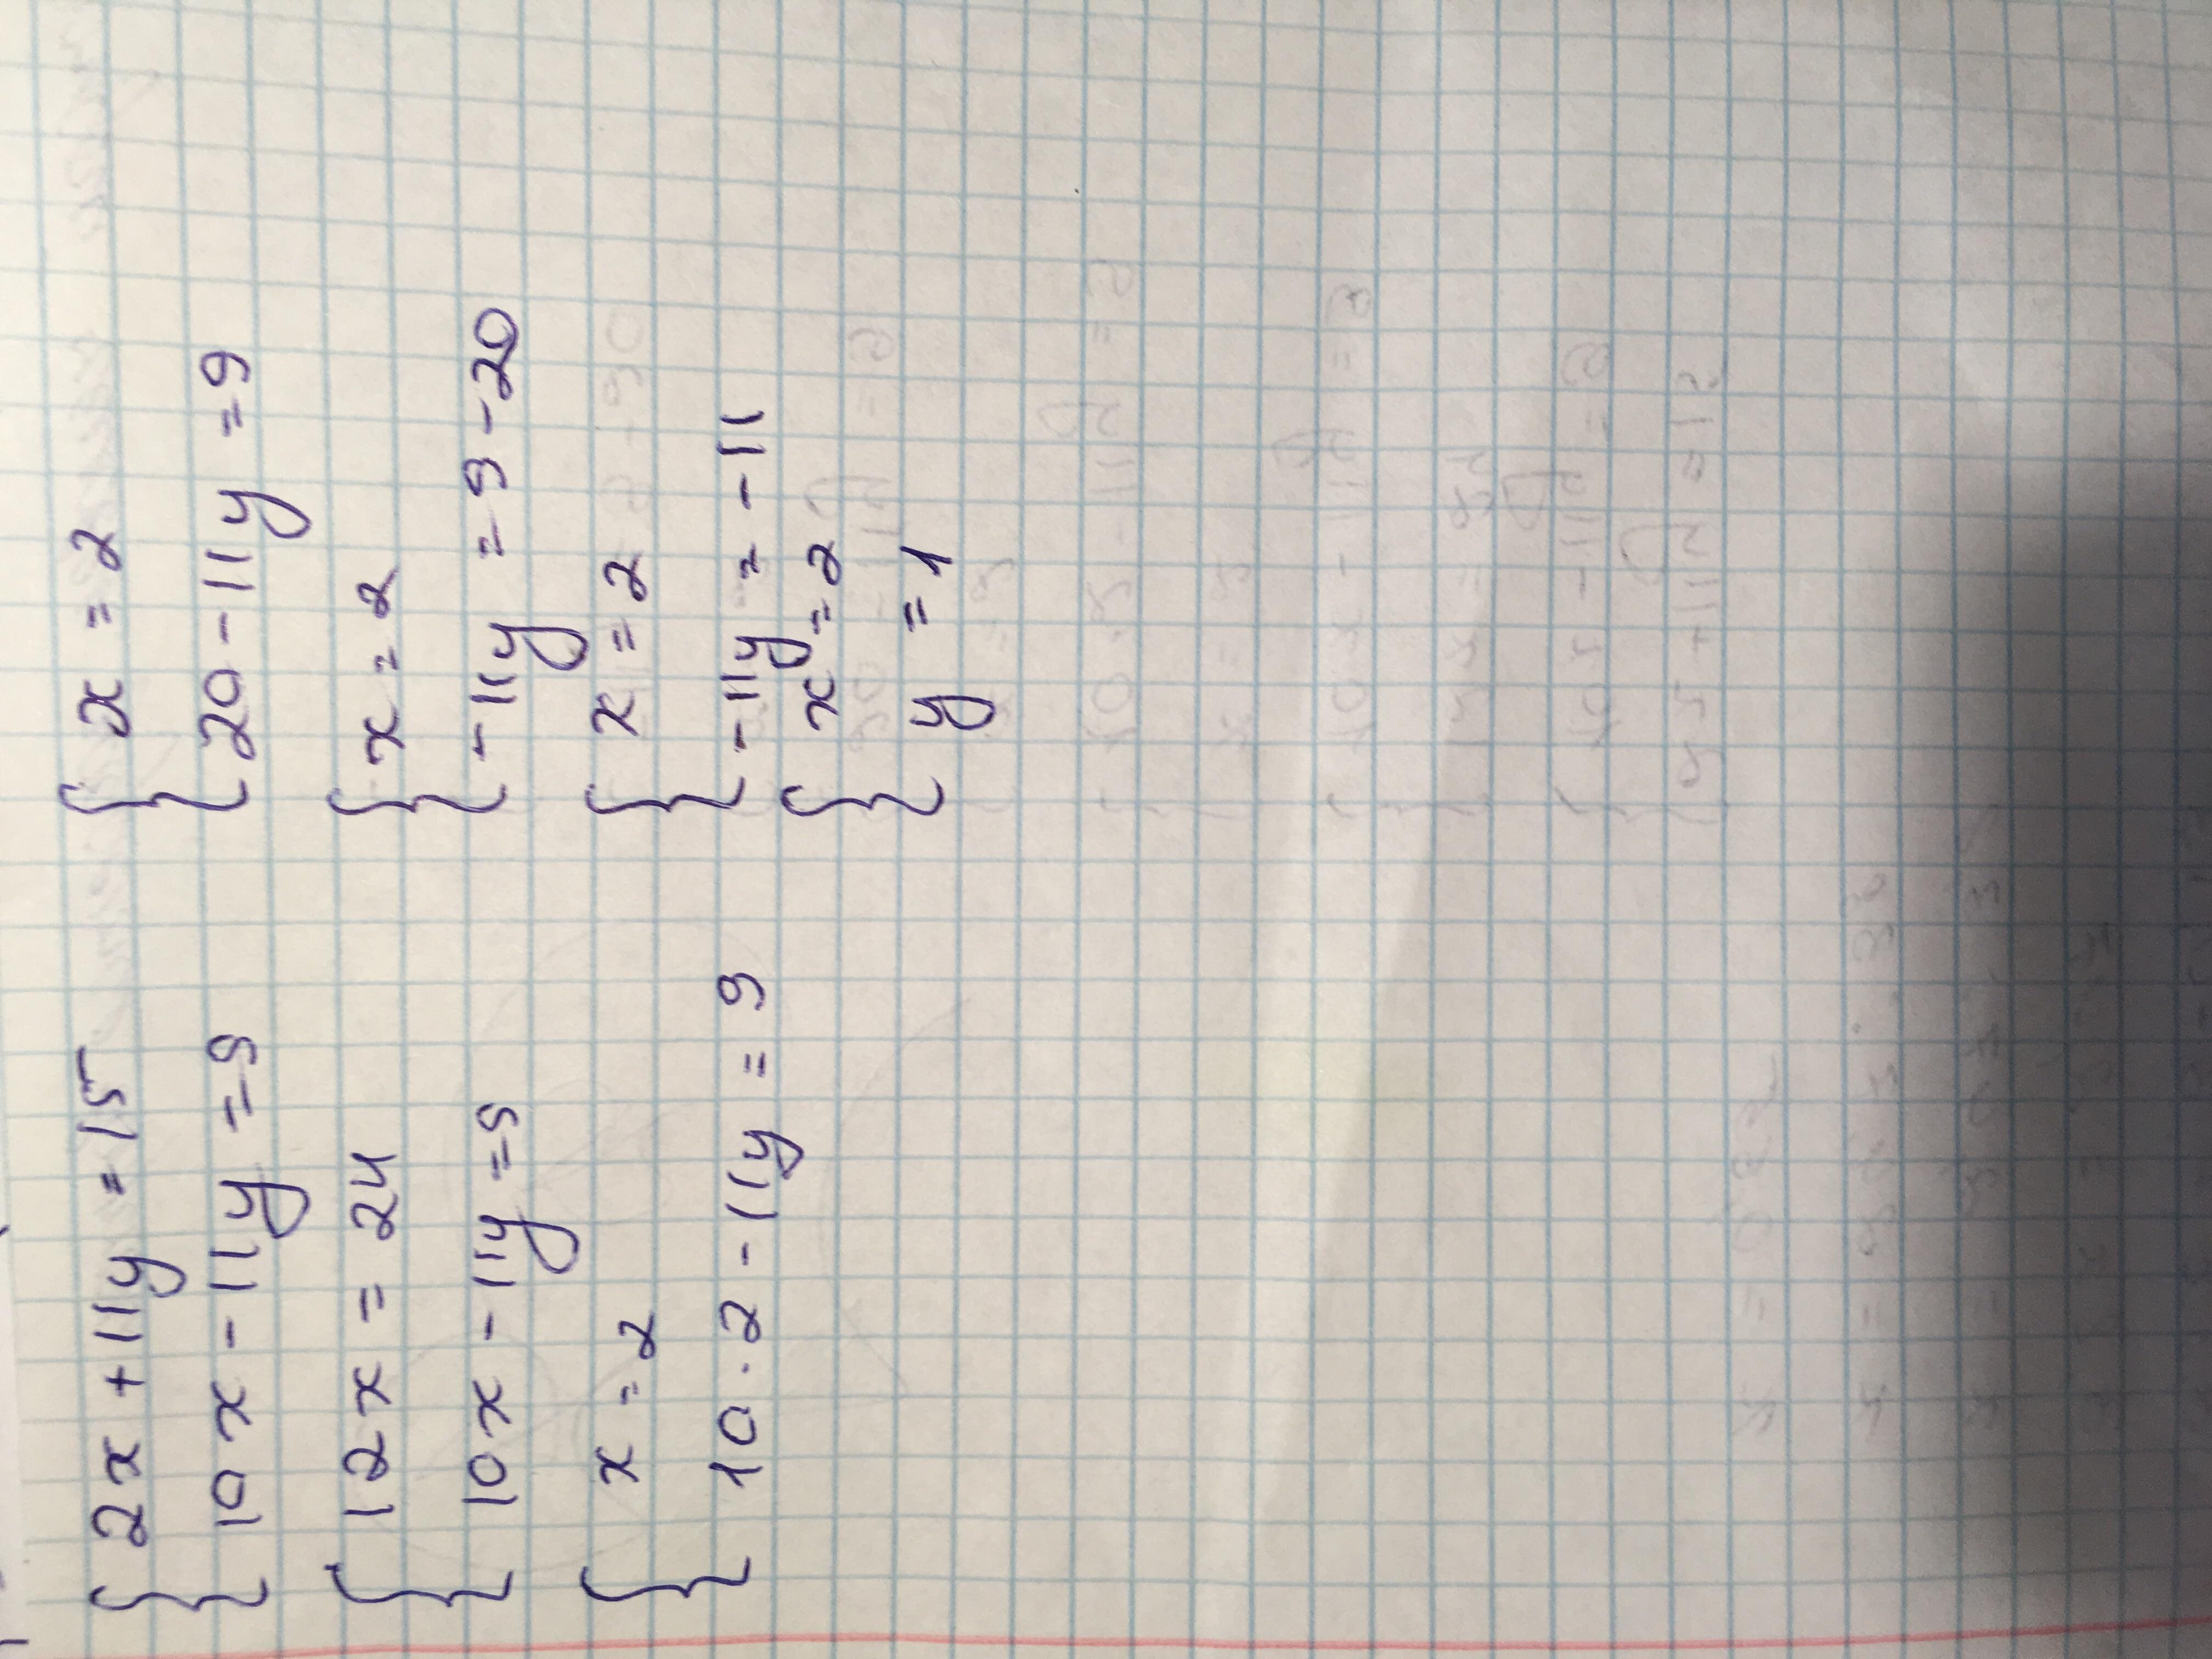 2x + 11y = 15
10x - 11y = 9
12x = 24
10x - 11y = 9
x = 2
10 · 2 - 11y = 9
x = 2
20 - 11y = 9
x = 2
-11y = 9 - 20
x = 2
-11y = -11
x = 2
y = 1